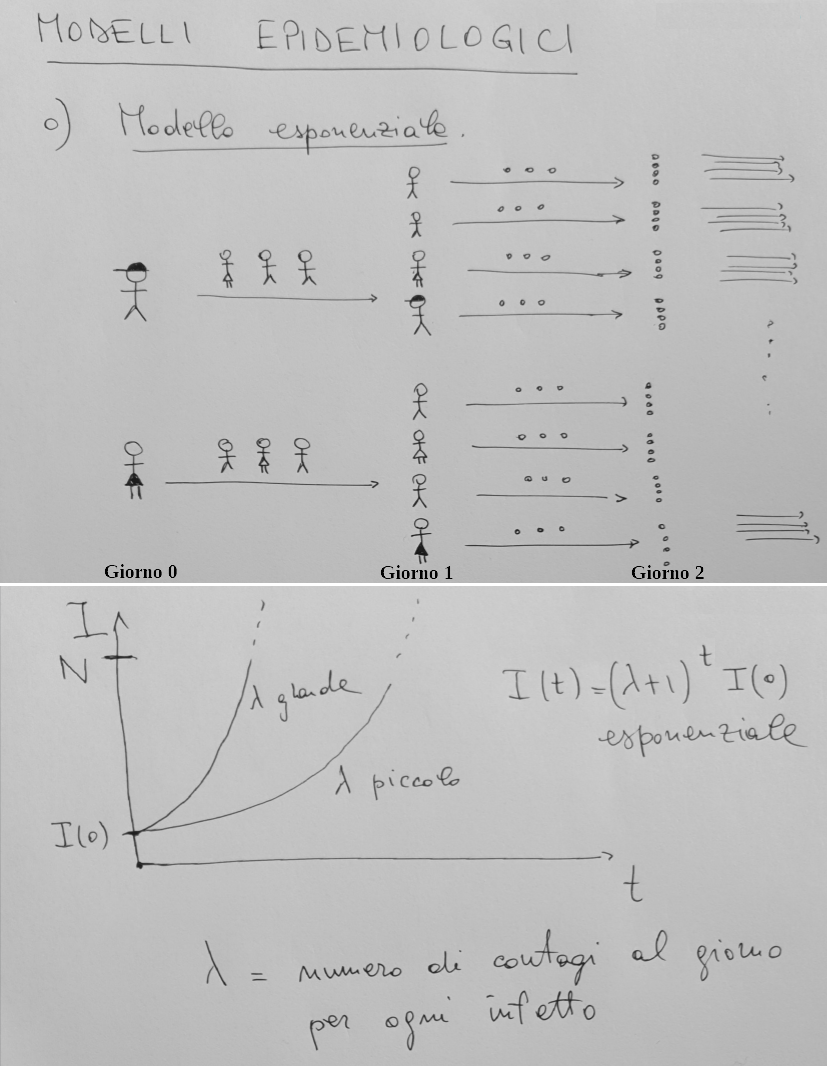 MODELLI EPIDEMIOLOGICI
0) Modello esponenziale.
Giorno 0 Giorno 1 Giorno 2
I
N
λ grande
I(t)=(λ+1)^t I(0)
esponenziale
λ piccolo
I(0)
t
λ = numero di contagi al giorno
per ogni infetto